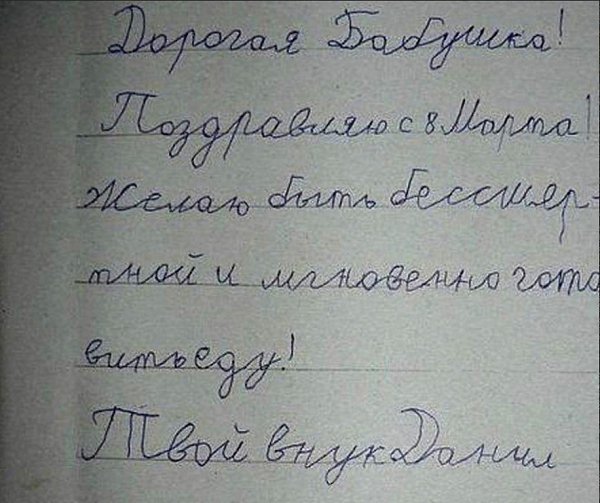 Дорогая Бабушка!
Поздравляю с 8 Марта!
Желаю быть бессмер-
тной и мгновенно гото
вить еду!
Твой внук Данил